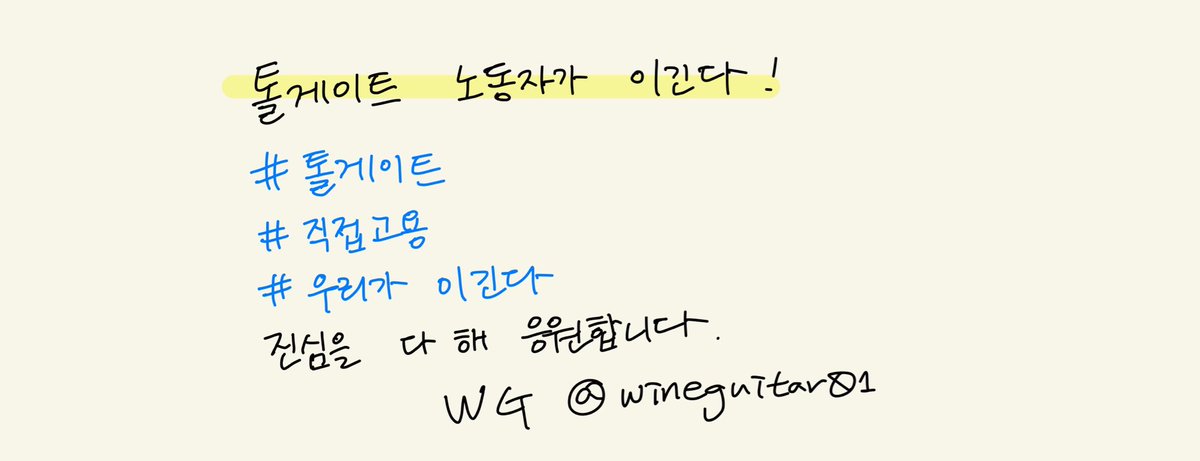 톨게이트 노동자가 이긴다!
# 톨게이트
# 직접고용
# 우리가 이긴다
진심을 다 해 응원합니다.
WG @wineguitar01